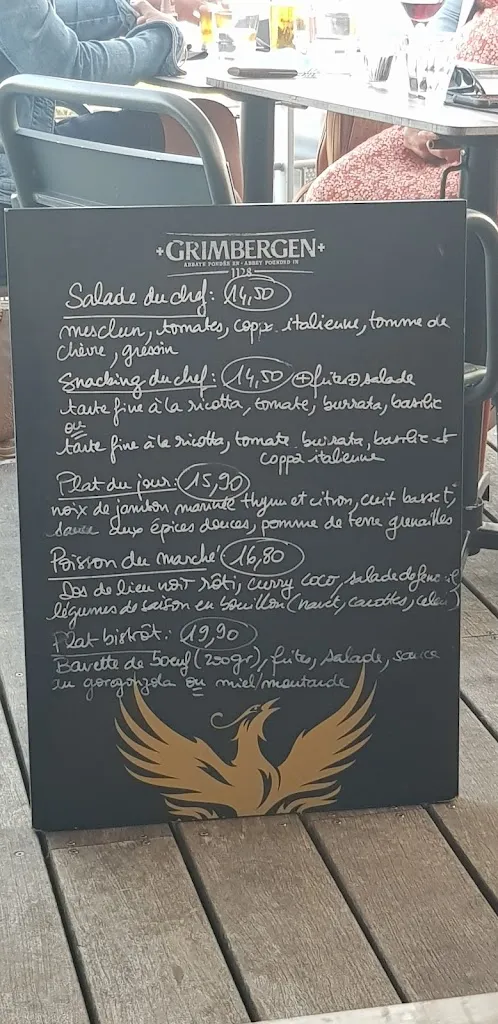 GRIMBERGEN
ABBAYE FONDÉE EN - ABBEY FOUNDED IN
1128
Salade du chef: 14,50
mesclun, tomates, coppa italienne, tomme de
chèvre, gressin
Snacking du chef: 14,50 + frites + salade
tarte fine à la ricotta, tomate, burrata, basilic
ou
tarte fine à la ricotta, tomate burrata, basilic et
coppa italienne
Plat du jour: 15,90
noix de jambon marinée thym et citron, cuit basse t°,
sauce aux épices douces, pomme de terre grenailles
Poisson du marché 16,80
Dos de lieu noir rôti, curry coco, salade de fenouil
légumes de saison en bouillon (navet, carottes, celeri)
Plat bistrôt: 19,90
Bavette de boeuf (200gr), frites, salade, sauce
au gorgonzola ou miel/moutarde